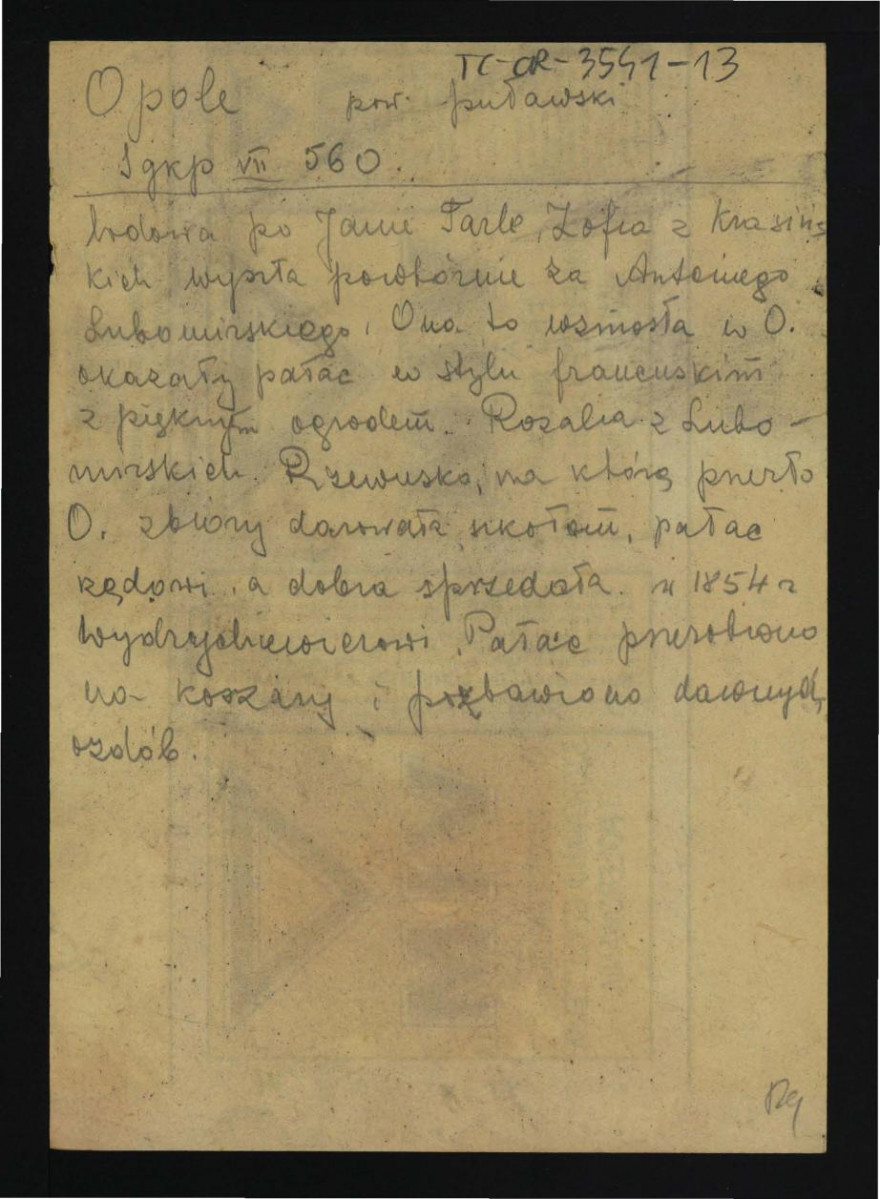 TC-OR-3541-13
Opole pow. puławski
Sgkp VII 560.
wdowa po Janie Tarle, Zofia z Krasińs
kich wyszła powtórnie za Antoniego
Lubomirskiego. Ona to wzniosła w O.
okazały pałac w stylu francuskim
z pięknym ogrodem. Rozalia z Lubo-
mirskich Rzewuska, na którą przeszło
O. zbiory darowała szkołom, pałac
rządowi, a dobra sprzedała w 1854 r
Wydrychiewiczowi. Pałac przerobiono
na koszary i pozbawiono dawnych
ozdób.